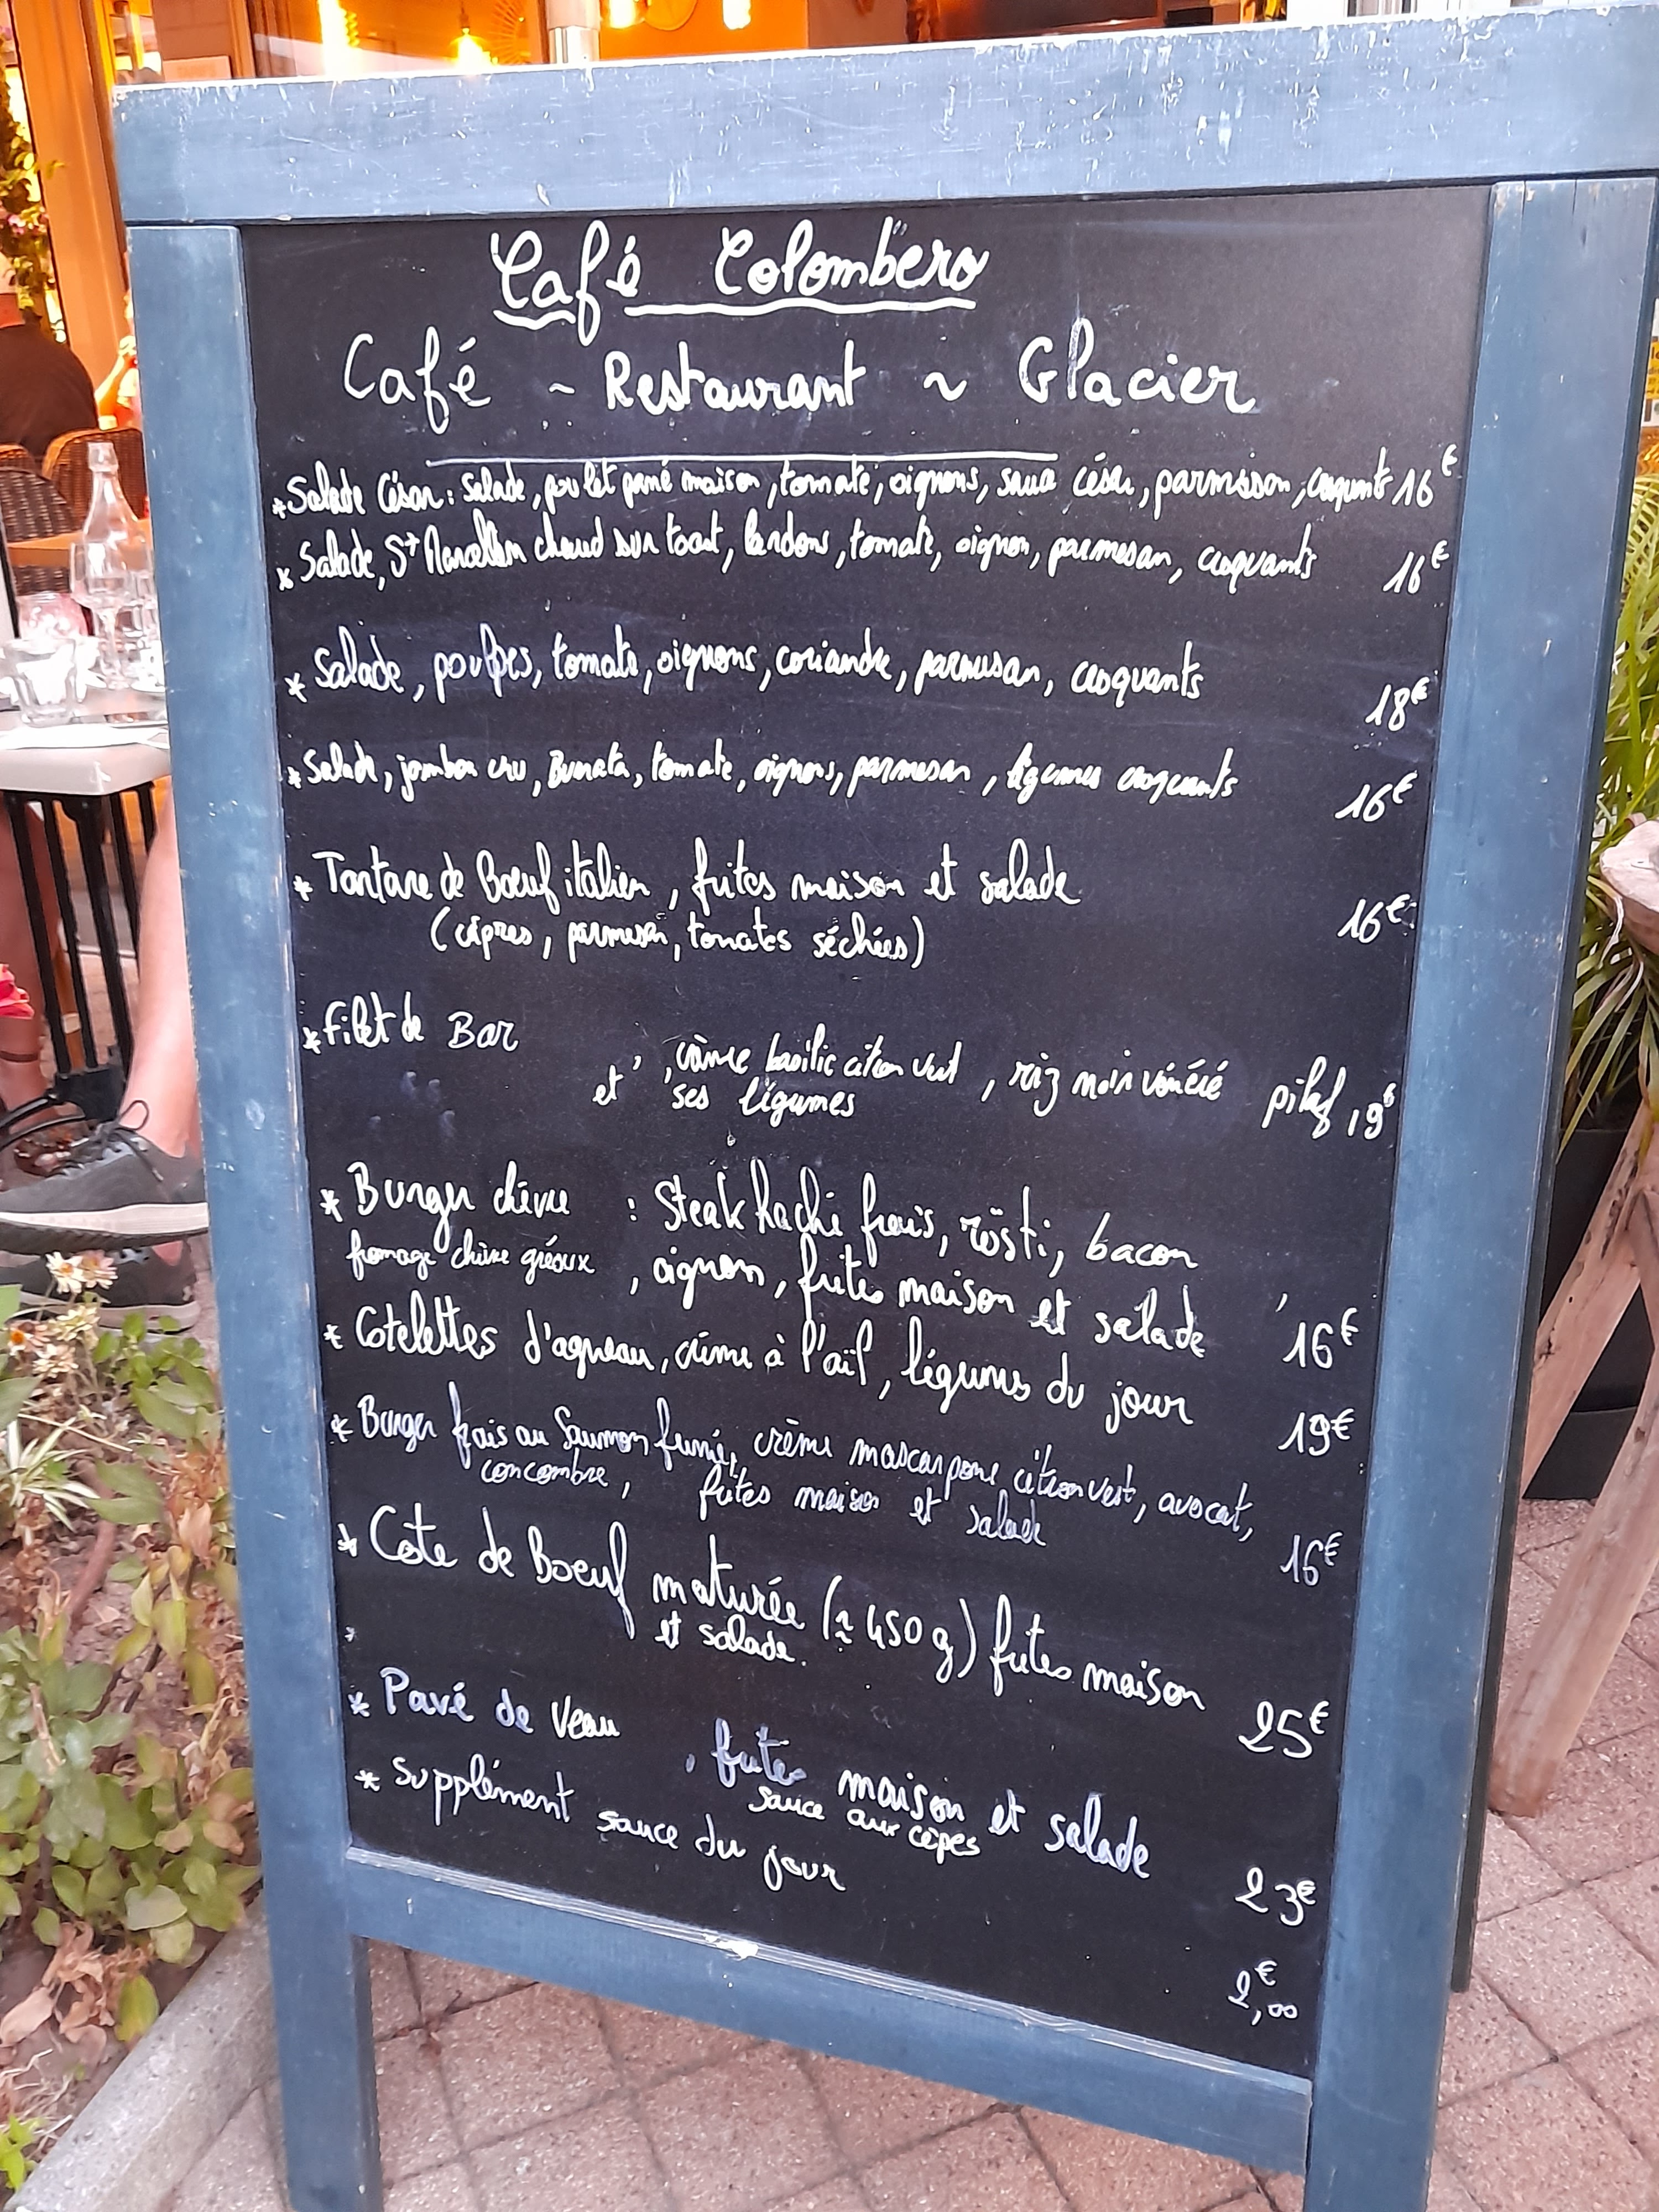 Café Colombero
Café ~ Restaurant ~ Glacier
* Salade César : Salade, poulet pané maison, tomate, oignons, sauce césar, parmesan, croquants 16€
* Salade, St Marcellin chaud sur toast, lardons, tomate, oignon, parmesan, croquants 16€
* Salade, poulpes, tomate, oignons, coriandre, parmesan, croquants 18€
* Salade, jambon cru, Burrata, tomate, oignons, parmesan, légumes croquants 16€
* Tartare de Boeuf italien, frites maison et salade 16€
(câpres, parmesan, tomates séchées)
* Filet de Bar, crème basilic citron vert, riz noir vénéré pilaf 19€
et ses légumes
* Burger chèvre : Steak haché frais, rösti, bacon
fromage chèvre gréoux, oignon, frites maison et salade, 16€
* Cotelettes d'agneau, crème à l'ail, légumes du jour 19€
* Burger frais au Saumon fumé, crème mascarpone citron vert, avocat,
concombre, frites maison et salade 16€
* Cote de Boeuf maturée (≈ 450 g) frites maison 25€
et salade.
* Pavé de Veau, frites maison et salade 23€
sauce aux cèpes
* Supplément sauce du jour 2,00€